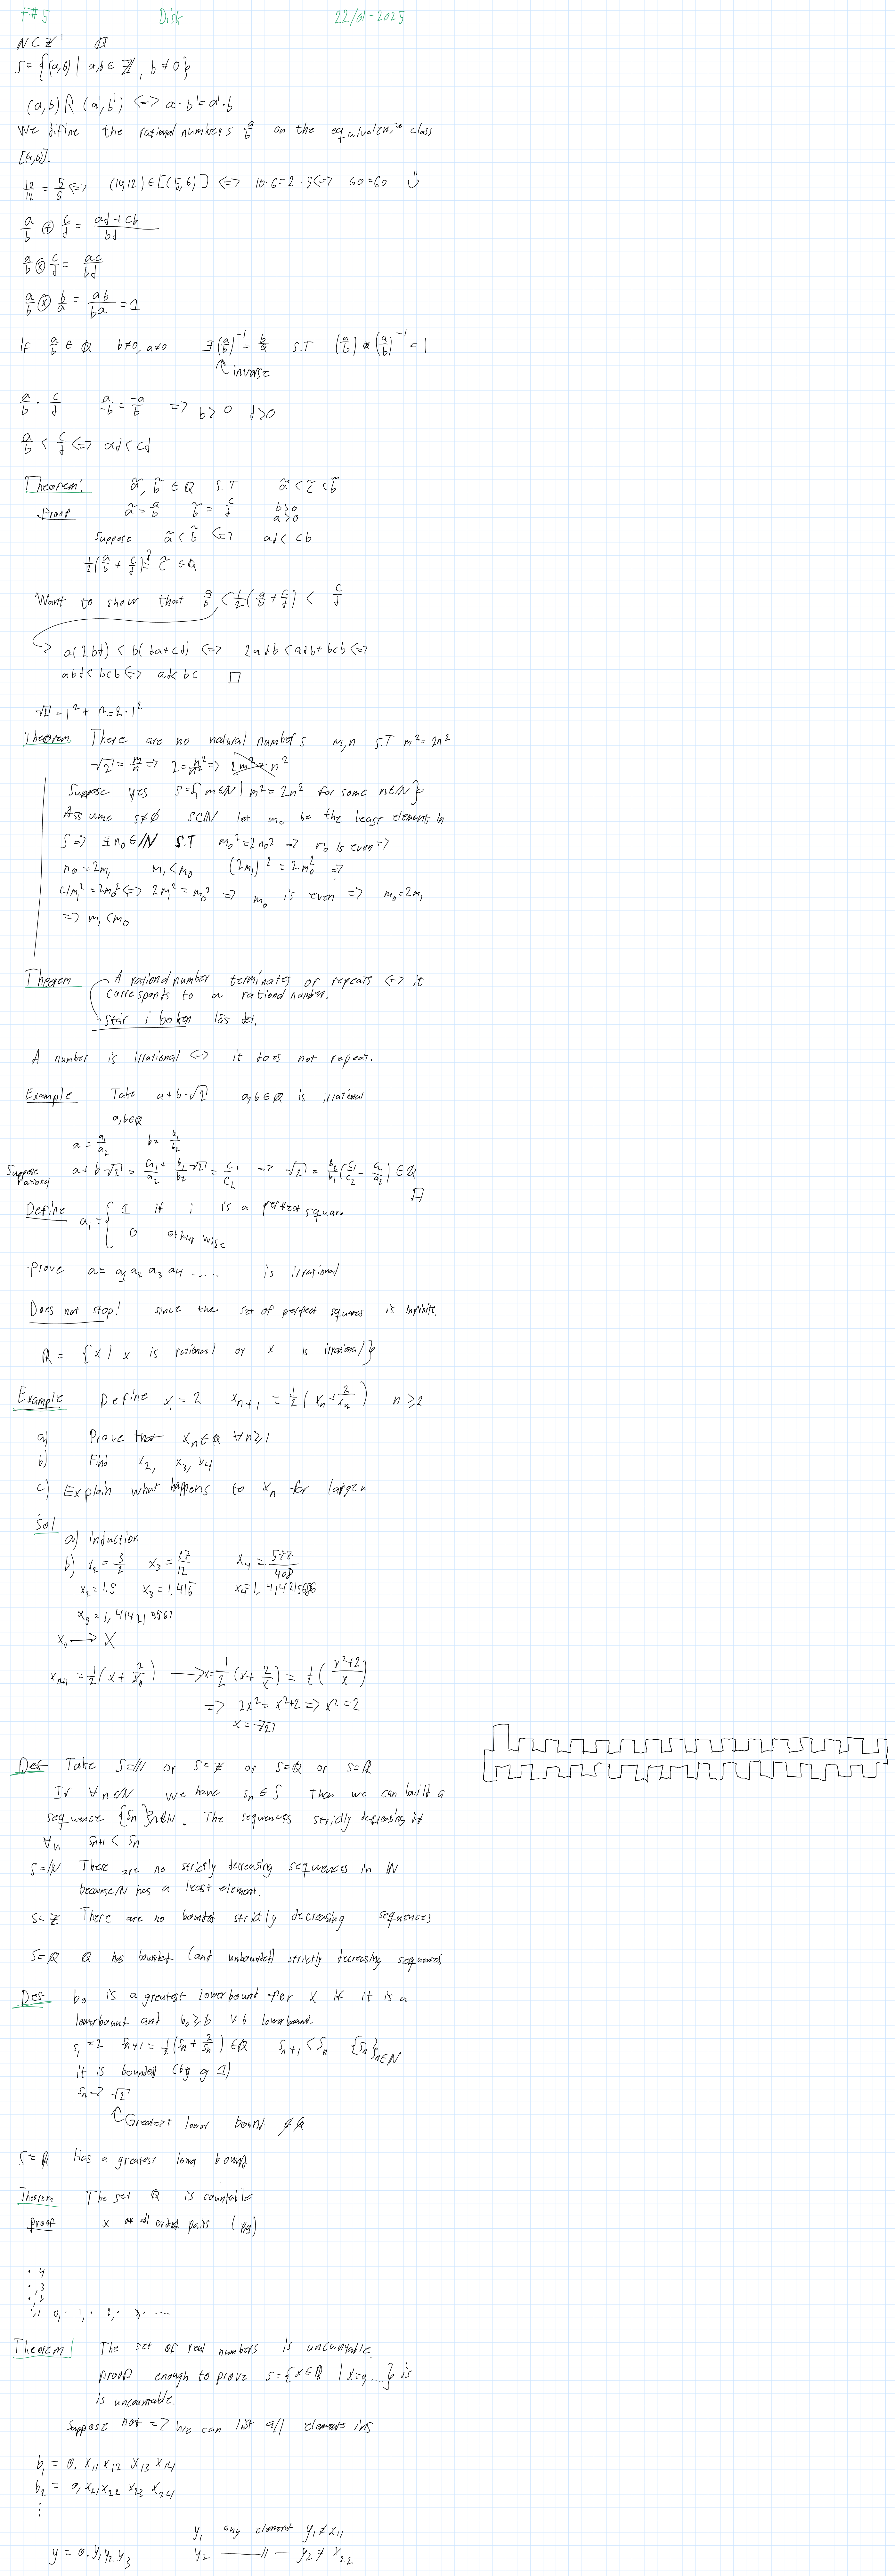 F#5 Disk 22/01-2025
N⊂Z' Q
S={(a,b) | a,b∈Z, b≠0}
(a,b) R (a',b') <=> a·b'=a'·b
We difine the rational numbers a/b on the equivalence class
[(a,b)].
10/12 = 5/6 <=> (10,12)∈[(5,6)] <=> 10·6=2·5 <=> 60=60 Ü
a/b ⊕ c/d = (ad+cb)/bd
a/b ⊗ c/d = ac/bd
a/b ⊗ b/a = ab/ba = 1
if a/b ∈ Q b≠0, a≠0 ∃(a/b)^-1 = b/a S.T (a/b)*(a/b)^-1 = 1
inverse
a/b · c/d a/-b = -a/b => b>0 d>0
a/b < c/d <=> ad<cd
Theorem: ã, b̃ ∈ Q S.T ã<c̃<b̃
Proof ã=a/b b̃=c/d b>0
a>0
Suppose ã<b̃ <=> ad<cb
1/2(a/b + c/d) ?= c̃ ∈Q
Want to show that a/b < 1/2(a/b + c/d) < c/d
a(2bd) < b(da+cd) <=> 2adb < adb+bcb <=>
abd<bcb <=> ad<bc □
√2 - 1²+1²=2·1²
Theorem There are no natural numbers m,n S.T m²=2n²
√2 = m/n => 2=n²/n² => 2m²=n²
Suppose yes S={m∈N | m²=2n² for some n∈N}
Assume S≠∅ S⊂N let m₀ be the least element in
S => ∃n₀∈N S.T m₀²=2n₀² => m₀ is even =>
n₀=2m₁ m₁<m₀ (2m₁)²=2m₀² =>
4m₁²=2m₀² <=> 2m₁²=m₀² => m₀ is even => m₀=2m₁
=> m₁<m₀
Theorem A rational number terminates or repeats <=> it
corresponds to a rational number.
Står i boken läs det.
A number is irrational <=> it does not repeat.
Example Take a+b√2 a,b∈Q is irrational
a,b∈Q
a=a₁/a₂ b=b₁/b₂
Suppose rational a+b√2 = a₁/a₂ + b₁/b₂ √2 = c₁/c₂ => √2 = b₂/b₁(c₁/c₂ - a₁/a₂) ∈Q
□
Define aᵢ={ 1 if i is a perfect square
0 otherwise
prove a= a₁a₂ a₃ a₄ ..... is irrational
Does not stop! since the set of perfect squares is infinite.
R = {x | x is rational or x is irrational}
Example Define x₁=2 xₙ₊₁ = 1/2(xₙ+2/xₙ) n≥2
a) Prove that xₙ∈Q ∀n≥1
b) Find x₂, x₃, x₄
c) Explain what happens to xₙ for large n
Sol
a) induction
b) x₂=3/2 x₃=17/12 x₄=577/408
x₂=1.5 x₃=1,416 x₄=1,414215686
x₅=1,414213562
xₙ → X
xₙ₊₁ = 1/2(x+2/xₙ) → x=1/2(x+2/x) = 1/2((x²+2)/x)
=> 2x²=x²+2 => x²=2
x=√2
Def Take S=N or S=Z or S=Q or S=R
If ∀n∈N we have sₙ∈S Then we can built a
sequence {sₙ}n∈N. The sequences strictly decreasing if
∀n sₙ₊₁ < sₙ
S=N There are no strictly decreasing sequences in N
because N has a least element.
S=Z There are no bounded strictly decreasing sequences
S=Q Q has bounded (and unbounded) strictly decreasing sequences
Def b₀ is a greatest lowerbound for X if it is a
lowerbount and b₀≥b ∀b lowerbound.
s₁=2 sₙ₊₁=1/2(sₙ+2/sₙ)∈Q sₙ₊₁<sₙ {sₙ}n∈N
it is bounded (by 1)
sₙ→√2
Greatest lower bount ∉Q
S=R Has a greatest lower bound
Theorem The set Q is countable
proof x all order pairs
4
3
2
1 0, 1, 2, 3, ....
Theorem The set of real numbers is uncountable.
proof enough to prove S={x∈R | x=0,....} is
is uncountable.
Suppose not => We can list all elements in S
b₁ = 0. x₁₁ x₁₂ x₁₃ x₁₄
b₂ = 0, x₂₁ x₂₂ x₂₃ x₂₄
⋮
y₁ any element y₁≠x₁₁
y=0.y₁y₂y₃ y₂ —— // — y₂≠x₂₂